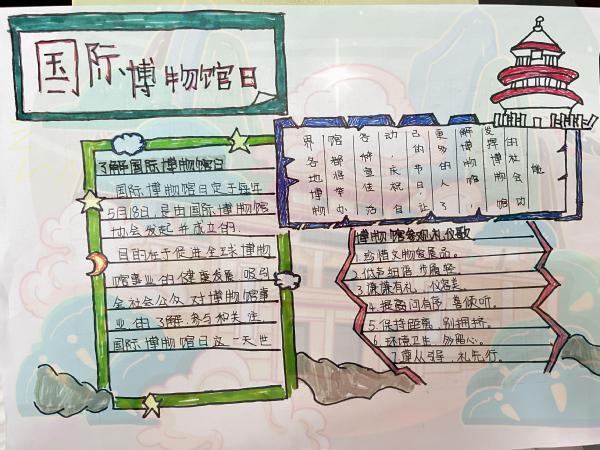 国际博物馆日
了解国际博物馆日
国际博物馆日定于每年
5月18日,是由国际博物馆
协会发起并成立的.
目的在于促进全球博物
馆事业的健康发展,吸引
全社会公众对博物馆事
业的了解、参与和关注
国际博物馆日这一天世
界各地博物
馆都得举办
各种宣传活
动,庆祝自
己的节日,让
更多的人了
解博物馆,
发挥博物馆
的社会功
能
博物馆参观礼仪歌
1.珍惜文物爱展品。
2.低声细语步履轻。
3.谦谦有礼,仪容美。
4.提问有序,喜倾听。
5.保持距离,别拥挤。
6.环境卫生,勿心。
7.尊从引导,礼先行。